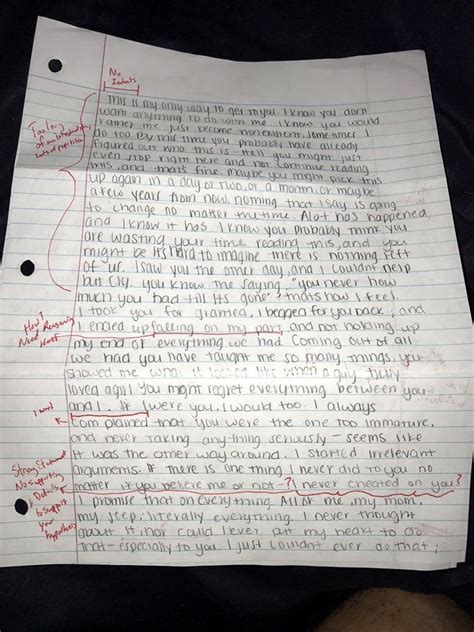 No
Indents
This is my only way to get to you I know you don't
want anything to do with me. I know you would
rather me just become nonexistent, sometimes I
do too. By this time you probably have already
figured out who this is - Hell you might just
even stop right here and not continue reading
this, and that's fine. Maybe you might pick this
up again in a day or two, or a month, or maybe
a few years from now, nothing that I say is going
to change no matter the time. Alot has happened,
and I know it has. I know you probably think you
are wasting your time reading this, and you
might be. It's hard to imagine there is nothing left
of "us". I saw you the other day, and I couldn't help
but cry. You know the saying, "you never know
much you had till its gone", thats how I feel.
I took you for granted, I begged for you back, and
I ended up falling on my part, and not holding up
my end of everything we had. Coming out of all
we had you have taught me so many things, you
showed me what it looked like when a guy fully
loved a girl. You might regret everything between you
and I. If I were you, I would too. I always
complained that you were the one too immature,
and never taking anything seriously - seems like
it was the other way around. I started irrelevant
arguments. If there is one thing I never did to you no
matter if you believe me or not - ? I never cheated on you?
I promise that on everything. All of me, my mom,
my jeep, literally everything. I never thought
about it, nor could I ever put my heart to do
that - especially to you. I just couldn't ever do that,
Too long
of an introduction,
lots of repetition
How?
Need Reasoning
Here
1 word
Strong Statement
No supporting
Details
to support
your
hypothesis